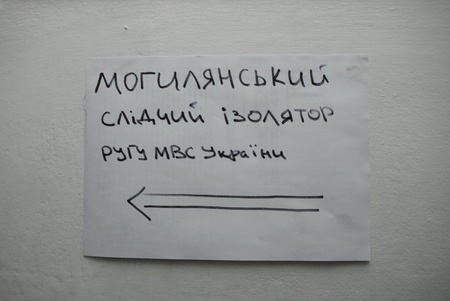 МОГИЛЯНСЬКИЙ
СЛІДЧИЙ ІЗОЛЯТОР
РУГУ МВС УКРАЇНИ